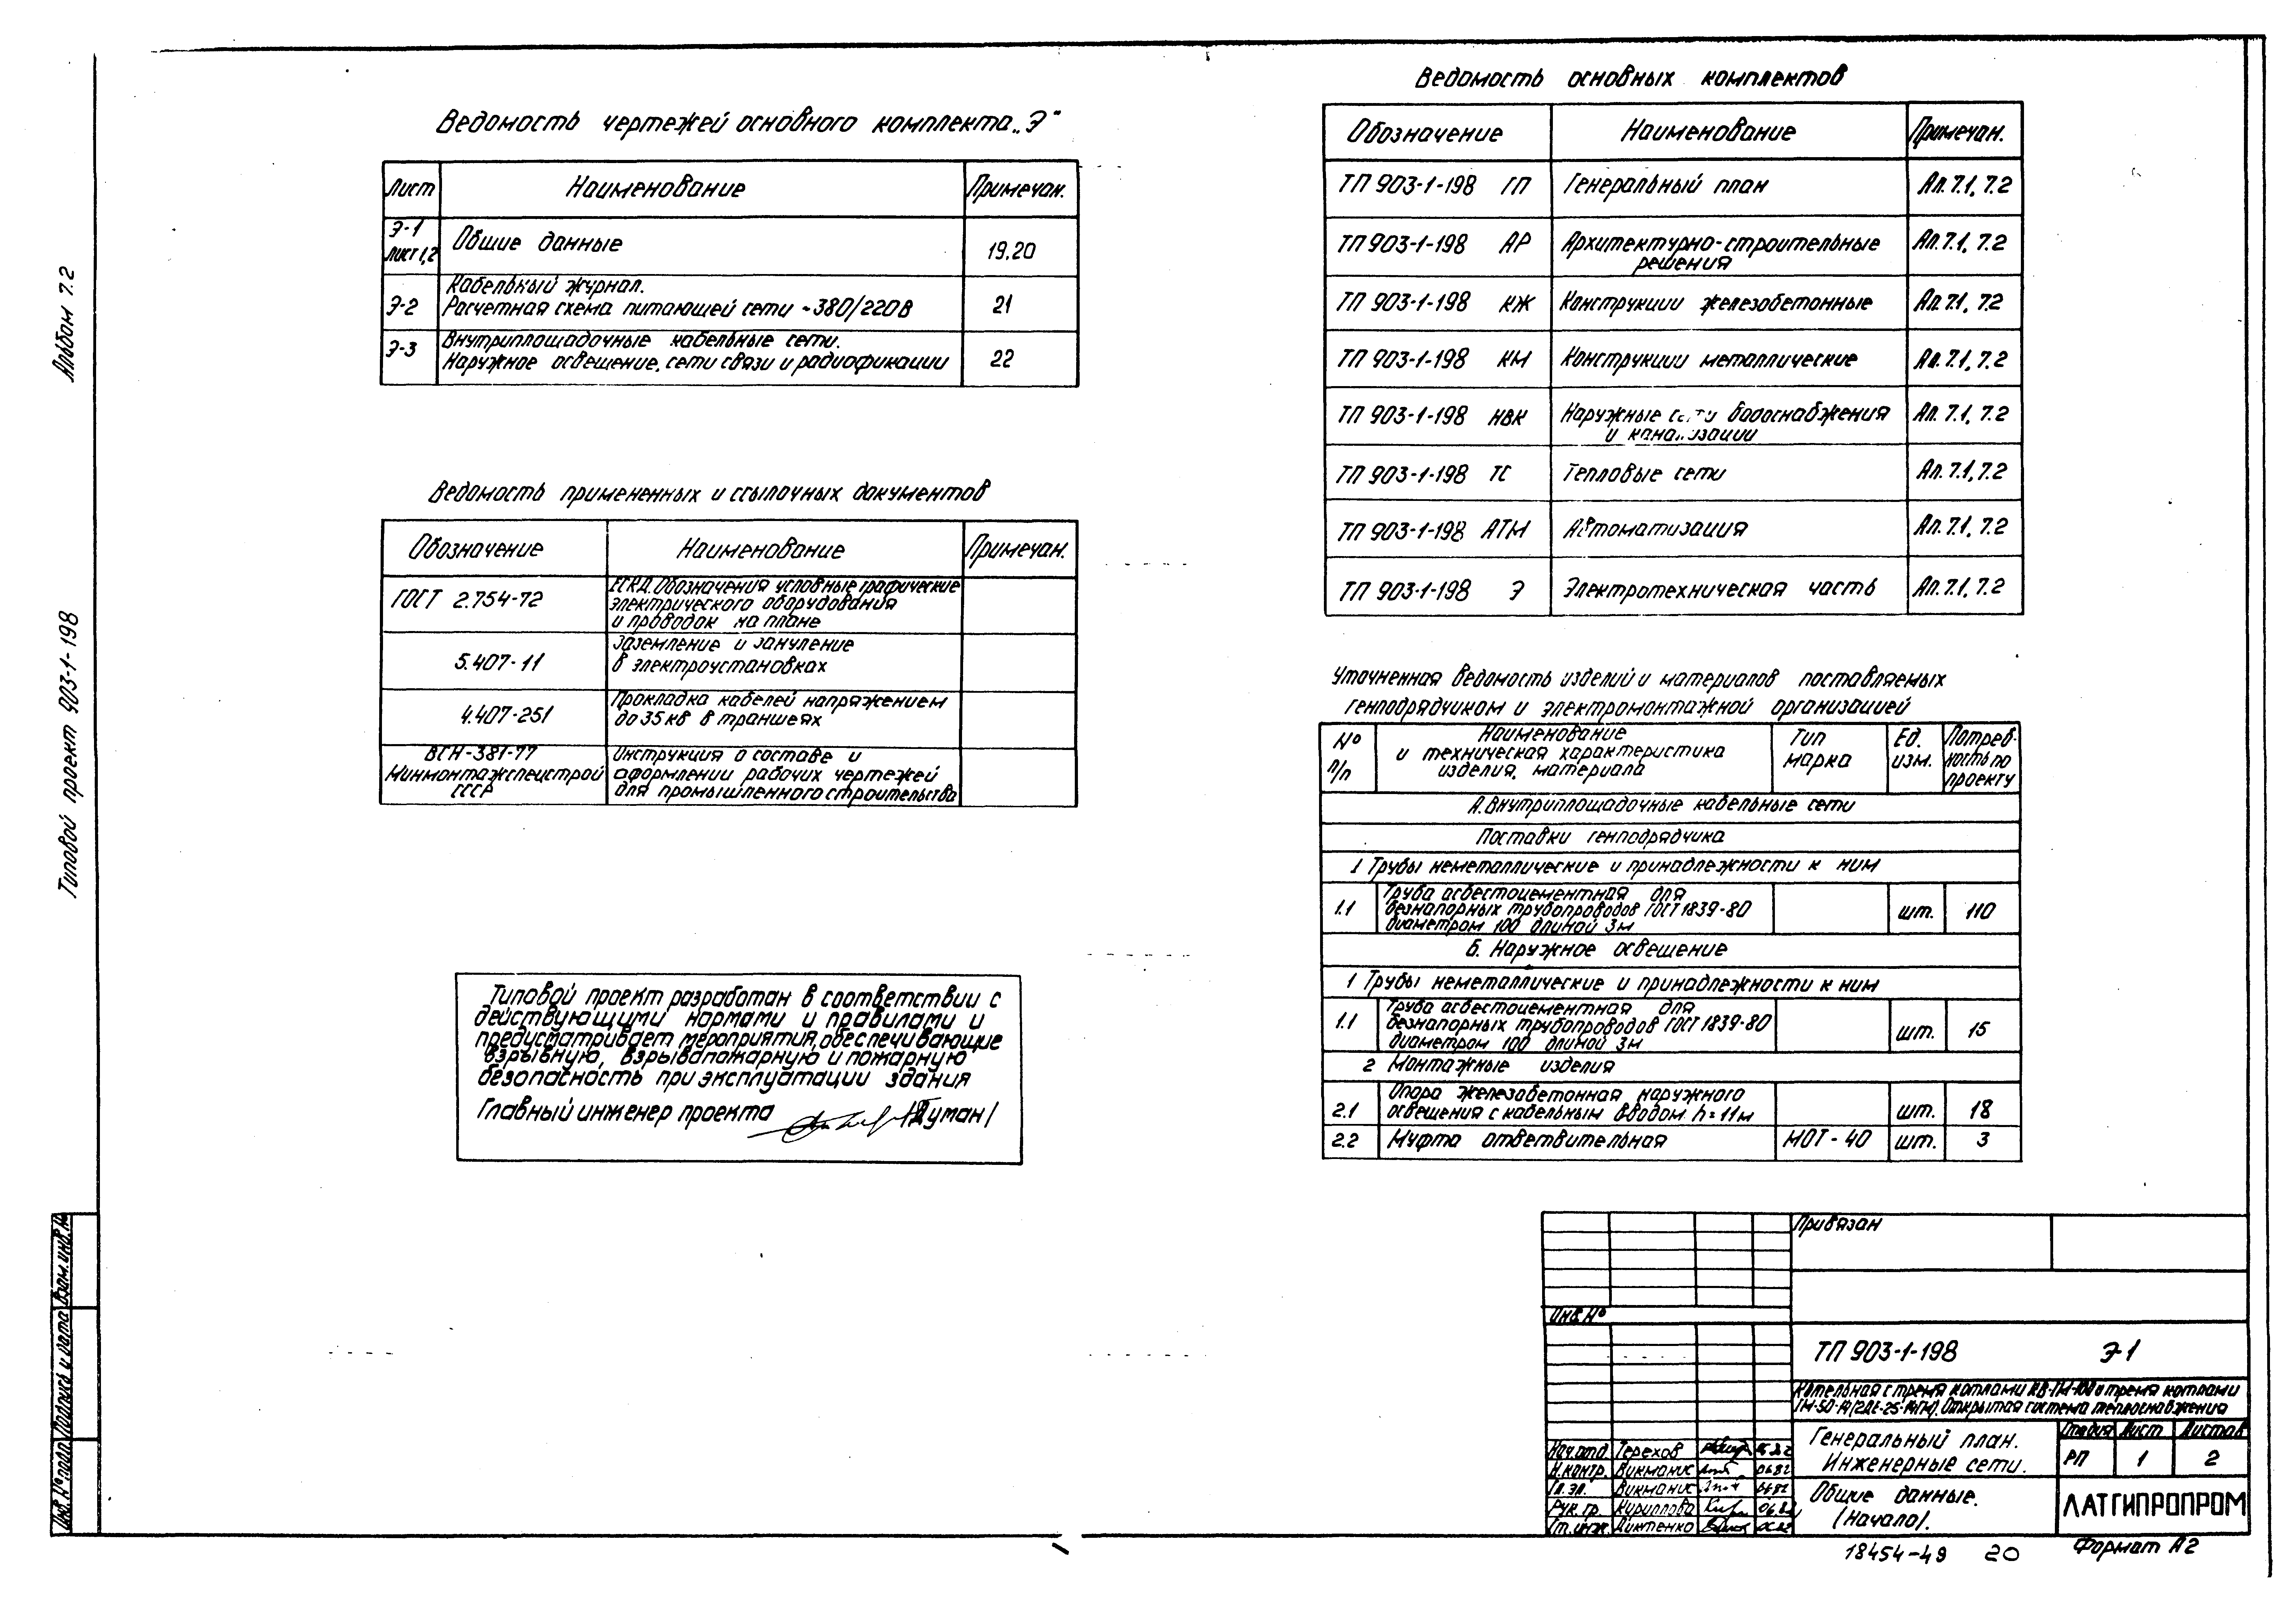 Альбом 7.2
Типовой проект 903-1-198
Ведомость чертежей основного комплекта „Э"
Лист Наименование Примечан.
Э-1 лист 1,2 Общие данные 19.20
Кабельный журнал.
Э-2 Расчетная схема питающей сети ~380/220В 21
Внутриплощадочные кабельные сети.
Э-3 Наружное освещение, сети связи и радиофикации 22
Ведомость примененных и ссылочных документов
Обозначение Наименование Примечан.
ГОСТ 2.754-72 ЕСКД. Обозначения условные графические
электрического оборудования
и проводок на плане
5.407-11 Заземление и зануление
в электроустановках
4.407-251 Прокладка кабелей напряжением
до 35 кв в траншеях
ВСН-381-77 Инструкция о составе и
Минмонтажспецстрой оформлении рабочих чертежей
СССР для промышленного строительства
Типовой проект разработан в соответствии с
действующими нормами и правилами и
предусматривает мероприятия, обеспечивающие
взрывную, взрывопожарную и пожарную
безопасность при эксплуатации здания
Главный инженер проекта /Думан/
Ведомость основных комплектов
Обозначение Наименование Примечан.
ТП 903-1-198 ГП Генеральный план Ал. 7.1, 7.2
ТП 903-1-198 АР Архитектурно-строительные Ал. 7.1, 7.2
решения
ТП 903-1-198 КЖ Конструкции железобетонные Ал. 7.1, 7.2
ТП 903-1-198 КМ Конструкции металлические Ал. 7.1, 7.2
ТП 903-1-198 НВК Наружные сети водоснабжения Ал. 7.1, 7.2
и канализации
ТП 903-1-198 ТС Тепловые сети Ал. 7.1, 7.2
ТП 903-1-198 АТМ Автоматизация Ал. 7.1, 7.2
ТП 903-1-198 Э Электротехническая часть Ал. 7.1, 7.2
Уточненная ведомость изделий и материалов поставляемых
генподрядчиком и электромонтажной организацией
№ п/п Наименование и техническая характеристика изделия, материала Тип марка Ед. изм. Потребность по проекту
А. Внутриплощадочные кабельные сети
Поставки генподрядчика
1 Трубы неметаллические и принадлежности к ним
1.1 Труба асбестоцементная для
безнапорных трубопроводов ГОСТ 1839-80 шт. 110
диаметром 100 длиной 3м
Б. Наружное освещение
1 Трубы неметаллические и принадлежности к ним
1.1 Труба асбестоцементная для
безнапорных трубопроводов ГОСТ 1839-80 шт. 15
диаметром 100 длиной 3м
2 Монтажные изделия
2.1 Опора железобетонная наружного
освещения с кабельным вводом h=11м шт. 18
2.2 Муфта ответвительная МОТ-40 шт. 3
Привязан
Инв. №
ТП 903-1-198 Э-1
Котельная с тремя котлами КВ-ГМ-100 и тремя котлами
ГМ-50-14/2ДЕ-25-14ГМ/. Открытая система теплоснабжения
Генеральный план.
Инженерные сети.
Стадия Лист Листов
РП 1 2
Общие данные.
/Начало/.
ЛАТГИПРОПРОМ
Нач.отд. Терехов
Н.контр. Викманис 06.82
Гл.эл. Викманис
Рук.гр. Кириллова 06.82
Ст.инж. Диктенко
Инв.№ подл. Подпись и дата Взам.инв.№
18454-49 20 Формат А2